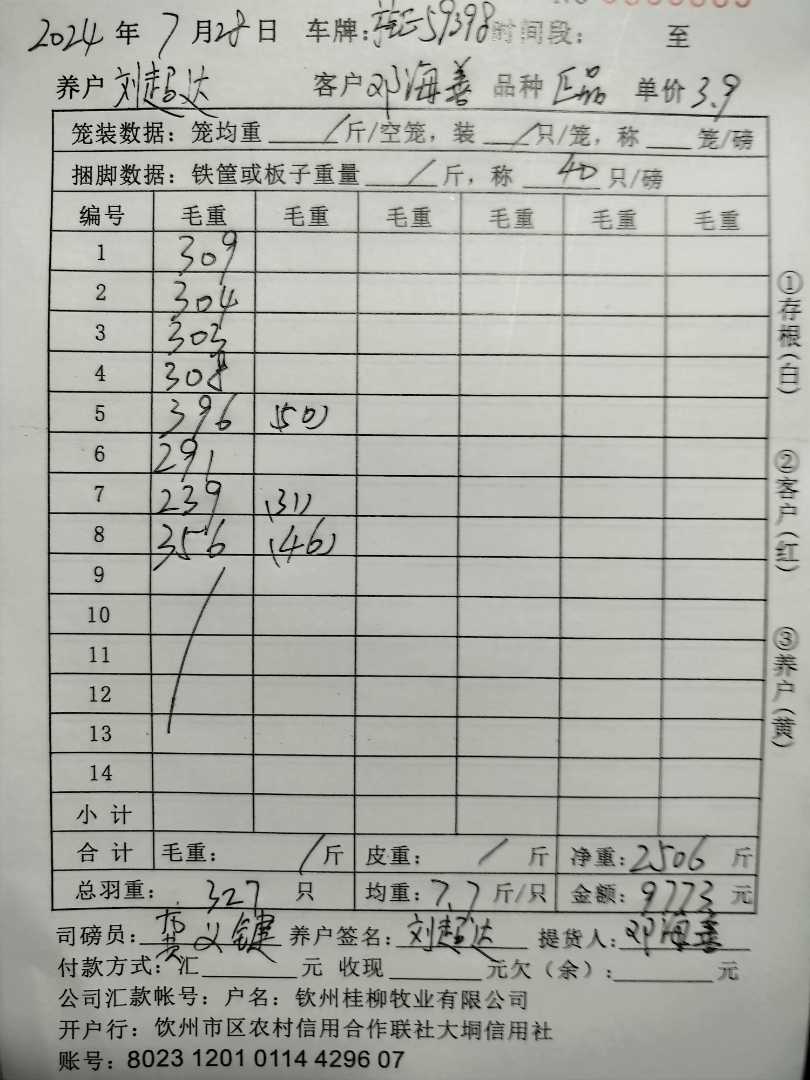 2024 年 7 月 28 日 车牌: 59398 时间段: 至
养户 刘超达 客户 邓海善 品种 正品 单价 3.9
笼装数据: 笼均重 / 斤/空笼, 装 / 只/笼, 称 笼/磅
捆脚数据: 铁筐或板子重量 / 斤, 称 40 只/磅
编号 毛重 毛重 毛重 毛重 毛重 毛重
1 309
2 304
3 303
4 308
5 396 (50)
6 291
7 239 (31)
8 356 (46)
9
10
11
12
13
14
小计
合计 毛重: / 斤 皮重: / 斤 净重: 2506 斤
总羽重: 327 只 均重: 7.7 斤/只 金额: 9773 元
司磅员: 黄义键 养户签名: 刘超达 提货人: 邓海善
付款方式: 汇 元 收现 元欠(余): 元
公司汇款帐号: 户名: 钦州桂柳牧业有限公司
开户行: 钦州市区农村信用合作联社大垌信用社
账号: 8023 1201 0114 4296 07
①存根(白)
②客户(红)
③养户(黄)